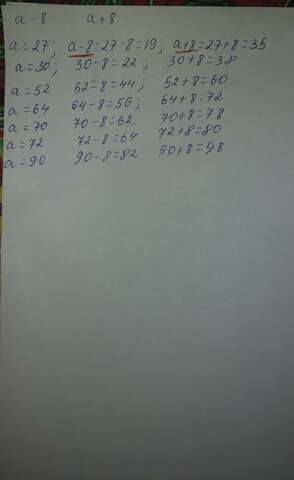 a-8 a+8.
a=27; a-8=27-8=19; a+8=27+8=35
a=30; 30-8=22, 30+8=38
a=52 52=8=44; 52+8=60
a=64 64-8=56; 64+8=72
a=70 70-8=62 70+8=78
a=72 72-8=64 72+8=80
a=90 90-8=82 90+8=98